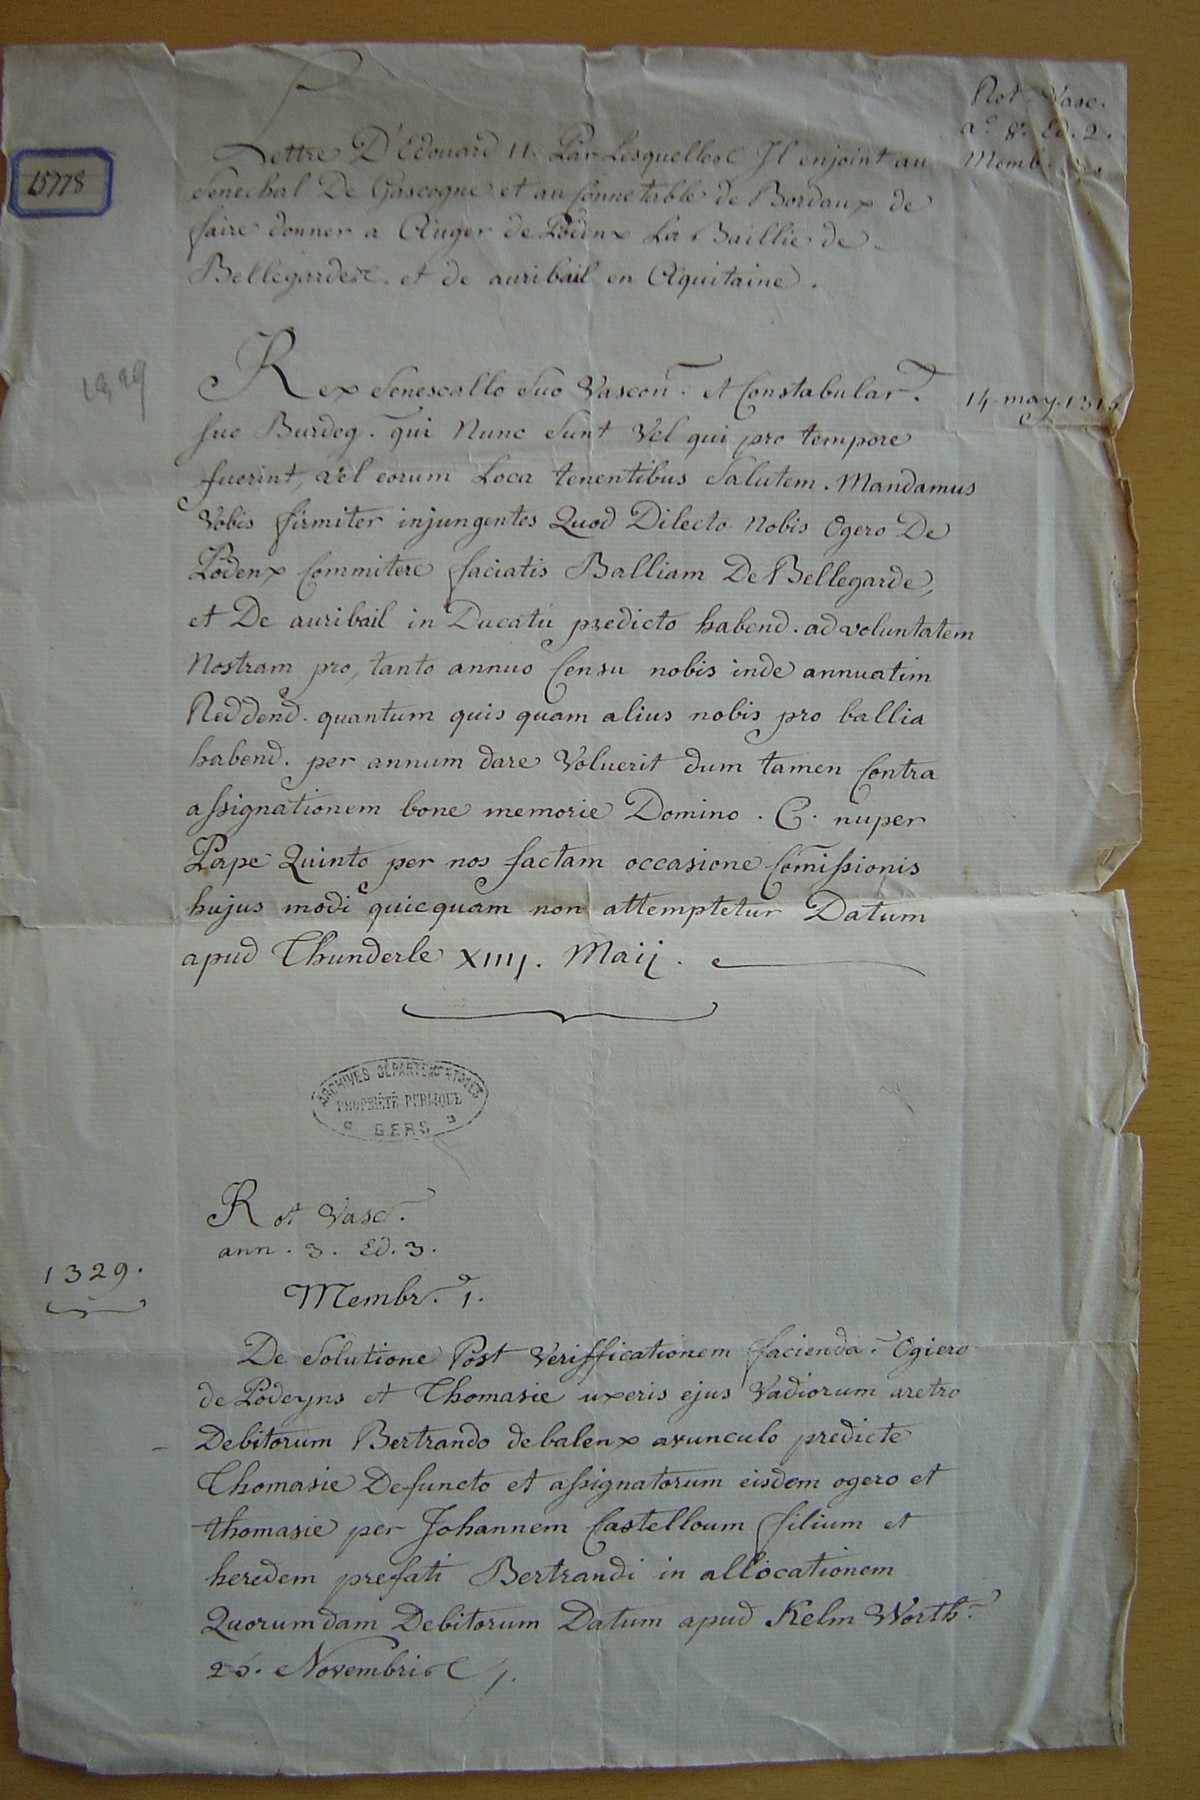 Rot Vasc.
a.º 8. Ed. 2.
Memb.
15778
Lettre D'Edouard II. Par Lesquelles Il enjoint au
Senechal De Gascogne et au Connetable de Bordaux de
faire donner a Auger de Podenx La Baillie de
Bellegarde et de auribail en Aquitaine.
1329
Rex Senescallo Suo Vascon. et Constabular.
14. may. 1315
suo Burdeg. qui Nunc Sunt Vel qui pro tempore
fuerint, vel eorum Loca tenentibus Salutem. Mandamus
Vobis firmiter injungentes Quod Dilecto Nobis Ogero De
Podenx Commitere faciatis Balliam De Bellegarde,
et De auribail in Ducatu predicto habend. ad voluntatem
Nostram pro, tanto annuo Censu nobis inde annuatim
Reddend. quantum quis quam alius nobis pro ballia
habend. per annum dare Voluerit dum tamen Contra
assignationem bone memorie Domino. C. nuper
Pape Quinto per nos factam occasione Comissionis
hujus modi quicquam non attemptetur Datum
apud Thunderle XIIIJ. Maij.
ARCHIVES DÉPARTEMENTALES
PROPRIÉTÉ PUBLIQUE
GERS
Rot Vasc.
ann. 3. Ed. 3.
1329.
Membr. 1.
De Solutione Post Verifficationem facienda. Ogiero
de Podeyns et Thomasie uxeris ejus Vadiorum aretro
Debitorum Bertrando de balenx avunculo predicte
Thomasie Defuncto et assignatorum eisdem ogero et
thomasie per Johannem Castelloum filium et
heredem prefati Bertrandi in allocationem
Quorumdam Debitorum Datum apud Kelm Worth.
26. Novembris